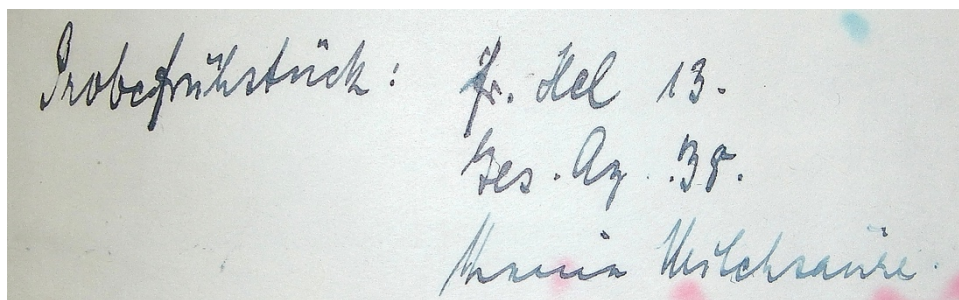 Probefrühstück: fr. Hcl 13.
Ges. Az. 38.
Keine Milchsäure.